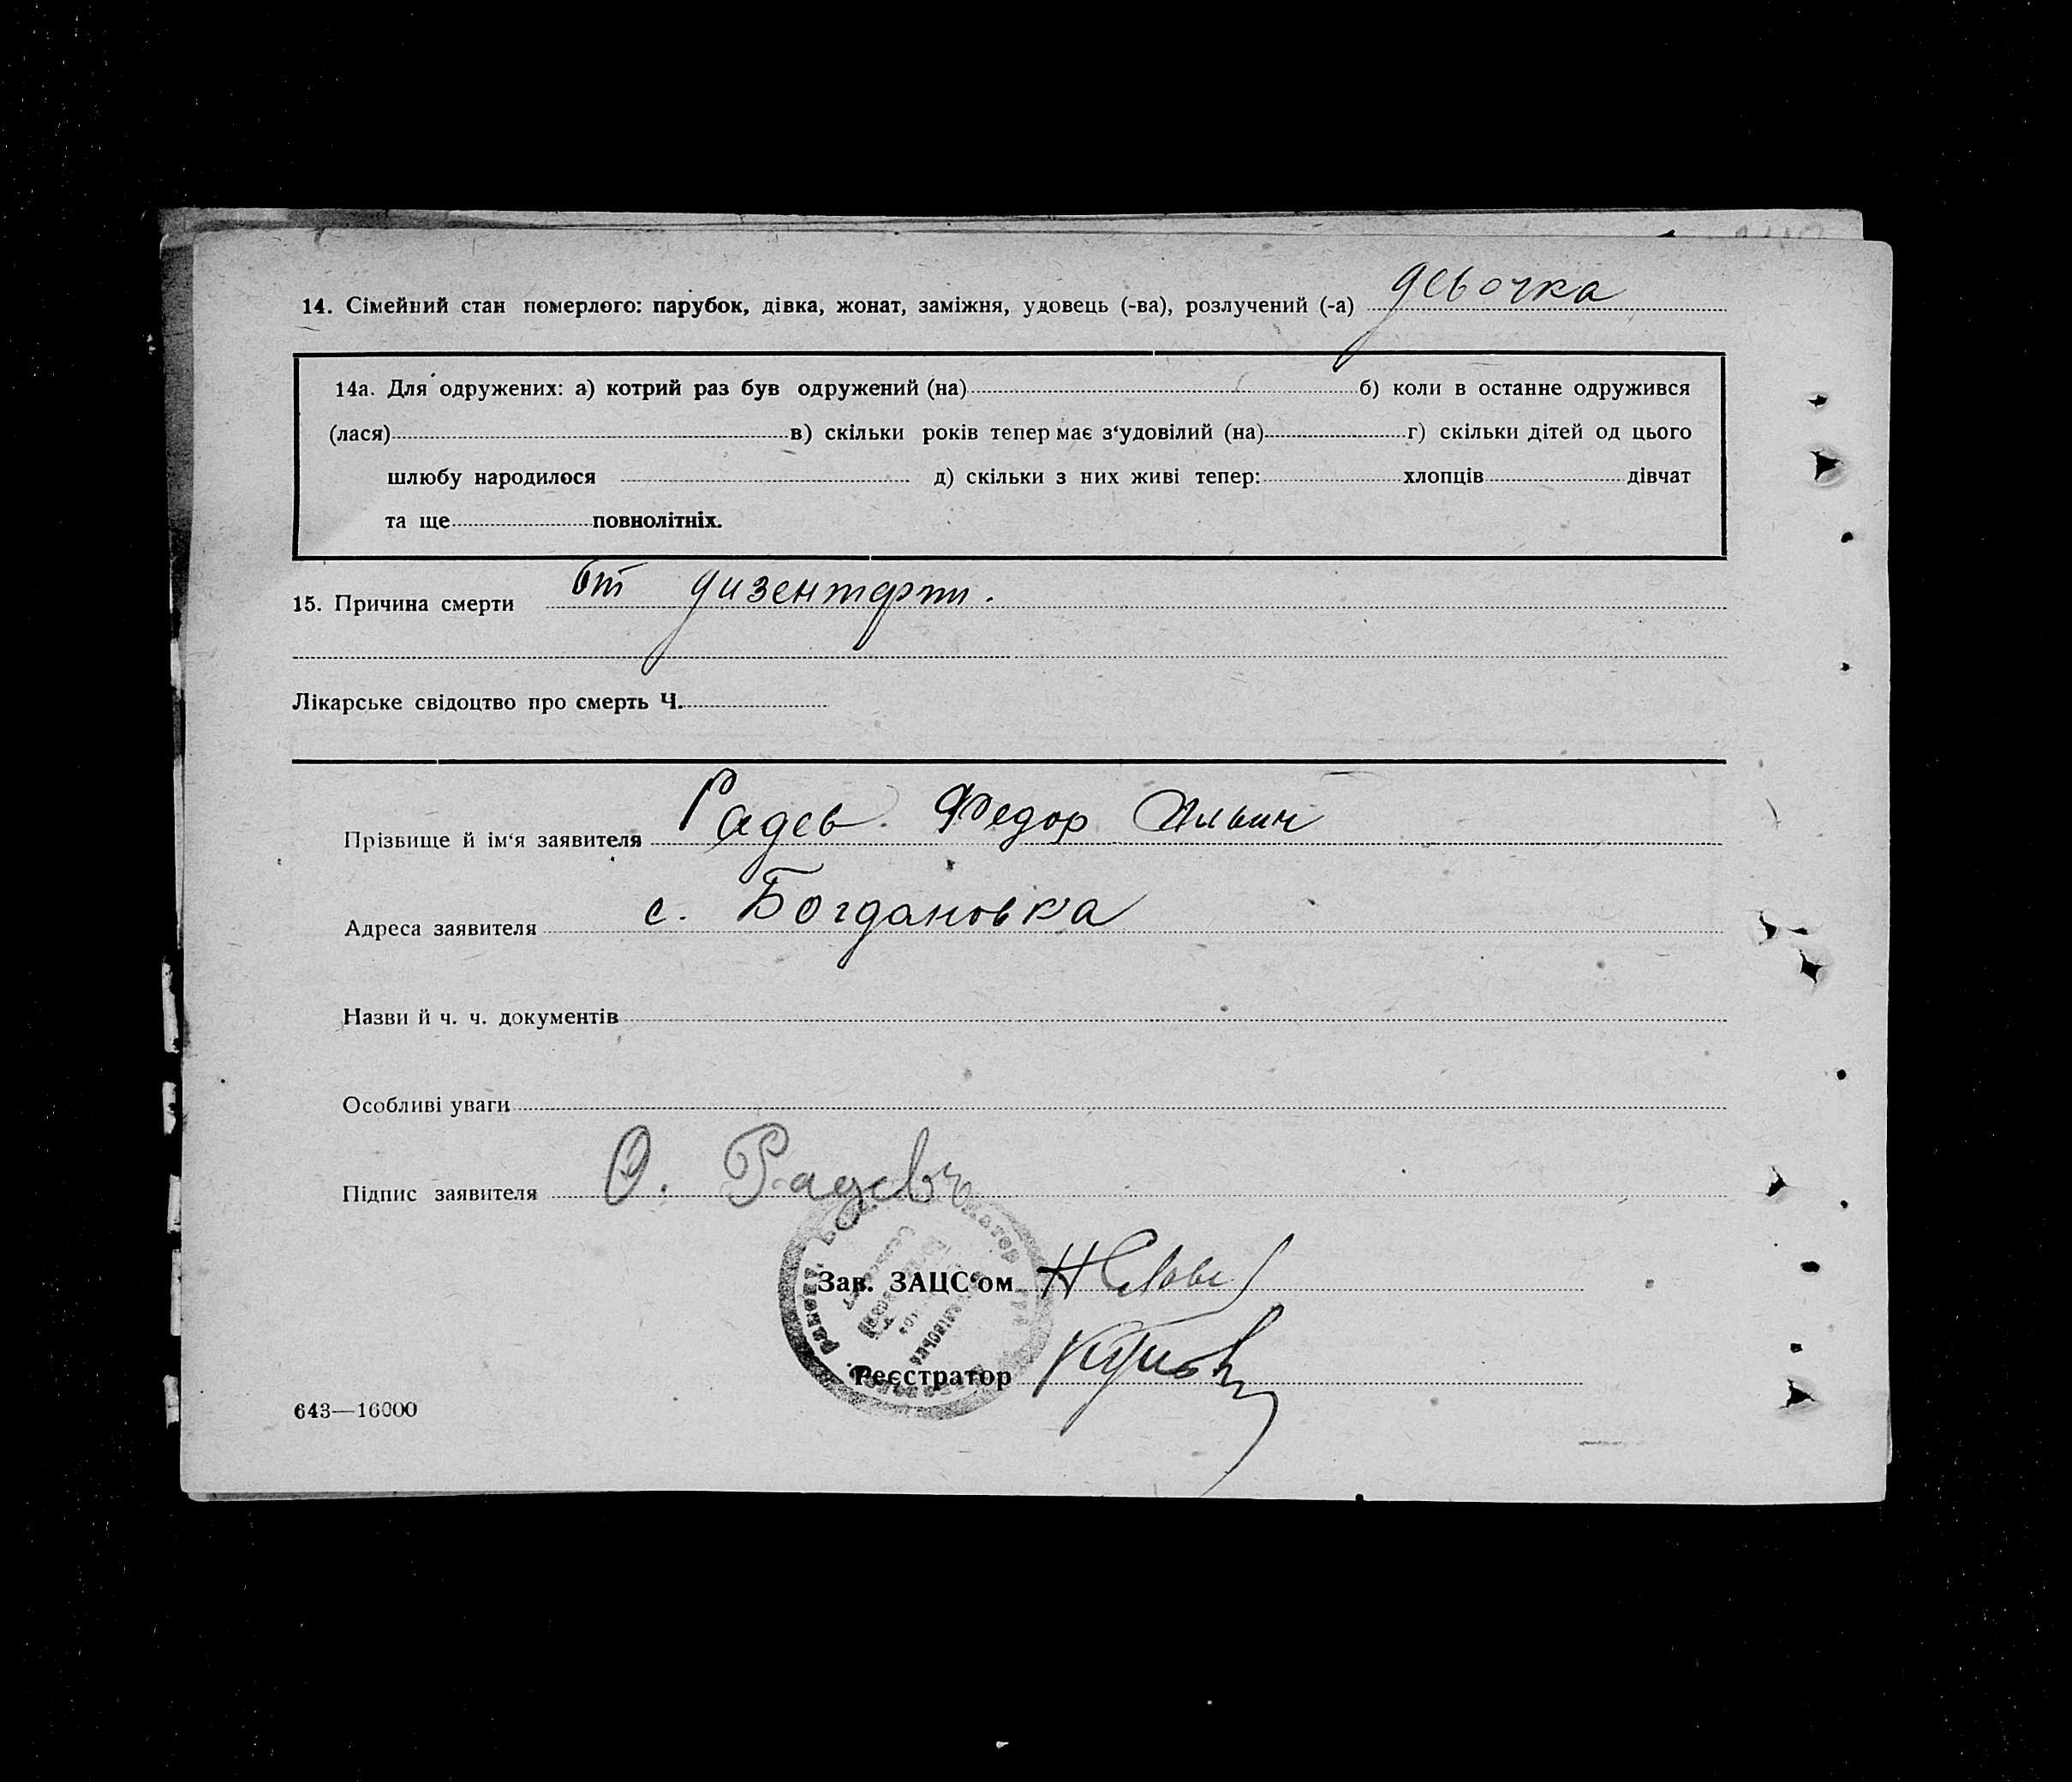 14. Сімейний стан померлого: парубок, дівка, жонат, заміжня, удовець (-ва), розлучений (-а) девочка
14а. Для одружених: а) котрий раз був одружений (на) б) коли в останнє одружився
(лася) в) скільки років тепер має з'удовілий (на) г) скільки дітей од цього
шлюбу народилося д) скільки з них живі тепер: хлопців дівчат
та ще повнолітніх.
15. Причина смерти от дизентерти.
Лікарське свідоцтво про смерть Ч.
Прізвище й ім'я заявителя Радев Федор Ильич
Адреса заявителя с. Богдановка
Назви й ч. ч. документів
Особливі уваги
Підпис заявителя Ѳ. Радевъ
Зав. ЗАЦС'ом
Реєстратор
643—16000